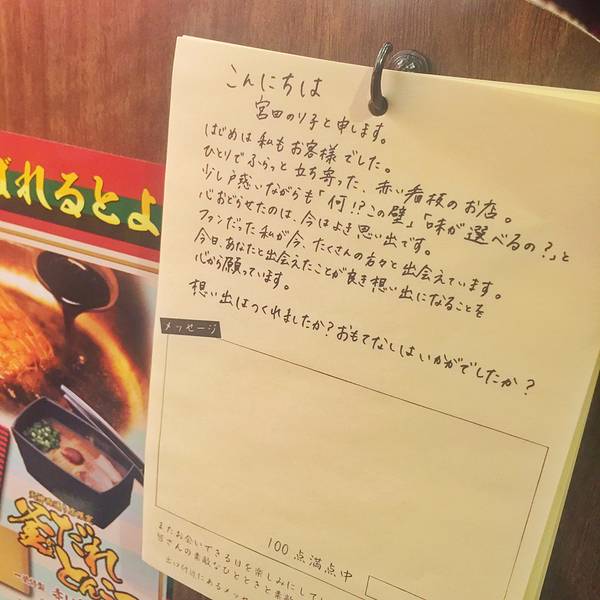 こんにちは
宮田のり子と申します。
はじめは私もお客様でした。
ひとりでふらっと立ち寄った、赤い看板のお店。
少し戸惑いながらも「何!?この壁」「味が選べるの?」と
心おどらせたのは、今はよき思い出です。
ファンだった私が今、たくさんの方々と出会えています。
今日、あなたと出会えたことが良き想い出になることを
心から願っています。
想い出はつくれましたか?おもてなしはいかがでしたか?
メッセージ
100点満点中
またお会いできる日を楽しみにして
皆さんの素敵なひとときと素敵
出口付近にあるメッセ
ばれるとよ
釜だれ
とんこつ